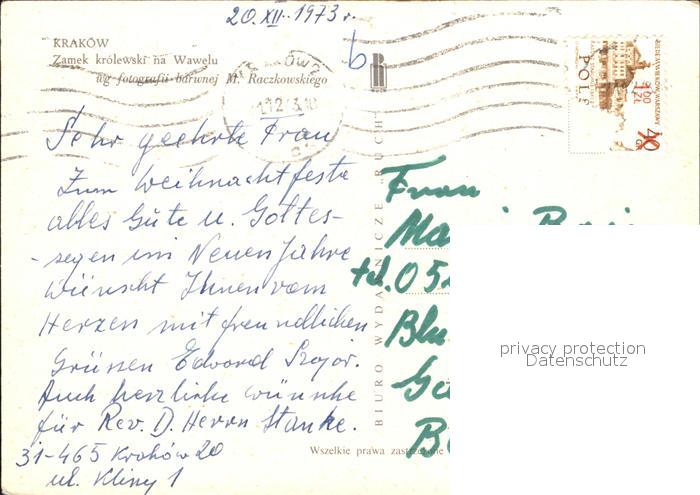 20.XII.1973 r.
KRAKÓW
Zamek królewski na Wawelu
wg fotografii barwnej M. Raczkowskiego
b
Sehr geehrte Frau
Zum Weihnachtfeste
alles Gute u. Gottes-
-segen im Neuen Jahre
wünscht Ihnen vom
Herzen mit freundlichen
Grüssen Edward
Auch herzliche wünche
für Rev. D. Herrn Stanke.
31-465 Kraków 20
ul. Kliny 1
BIURO WYDAWNICZE "RUCH"
Frau
Ma
Blu
Wszelkie prawa zastrzeżone
POLS
40
privacy protection
Datenschutz